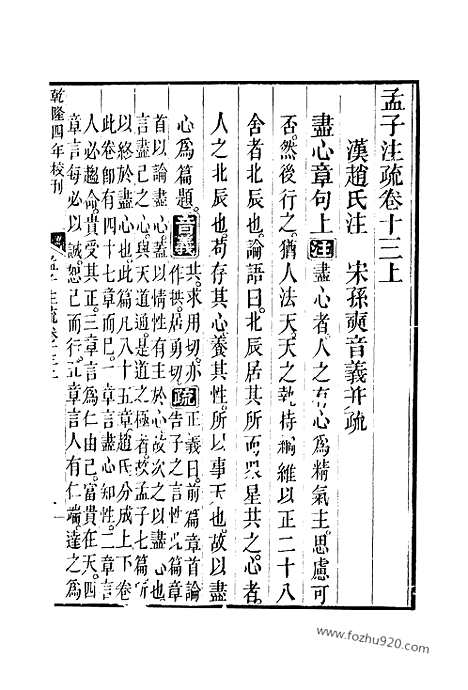 孟子注疏卷十三上
漢趙氏注　宋孫奭音義并疏
盡心章句上 注 盡心者。人之有心為精氣主。思慮可
否。然後行之。猶人法天。天之執持綱維以正二十八
舍者北辰也。論語曰。北辰居其所而眾星共之。心者。
人之北辰也。苟存其心。養其性。所以事天也。故以盡
心為篇題。 音義 共。求用切。亦
作拱。居勇切。 疏 正義曰。前篇章首論
告子之言性。此篇章
首以論盡心。蓋以情性有主於心。故次之以盡心也。
言盡己之心。與天道通。是道之極者。故孟子七篇所
以終於盡心也。此篇凡八十五章。趙氏分成上下卷。
此卷即有四十七章而已。一章言盡心知性。二章言
人必趨命。貴受其正。三章言為仁由己。富貴在天。四
章言每必以誠。恕己而行。五章言人有仁端。達之為
乾隆四年校刊
孟子注疏卷十三上
一
www.fozhu920.com